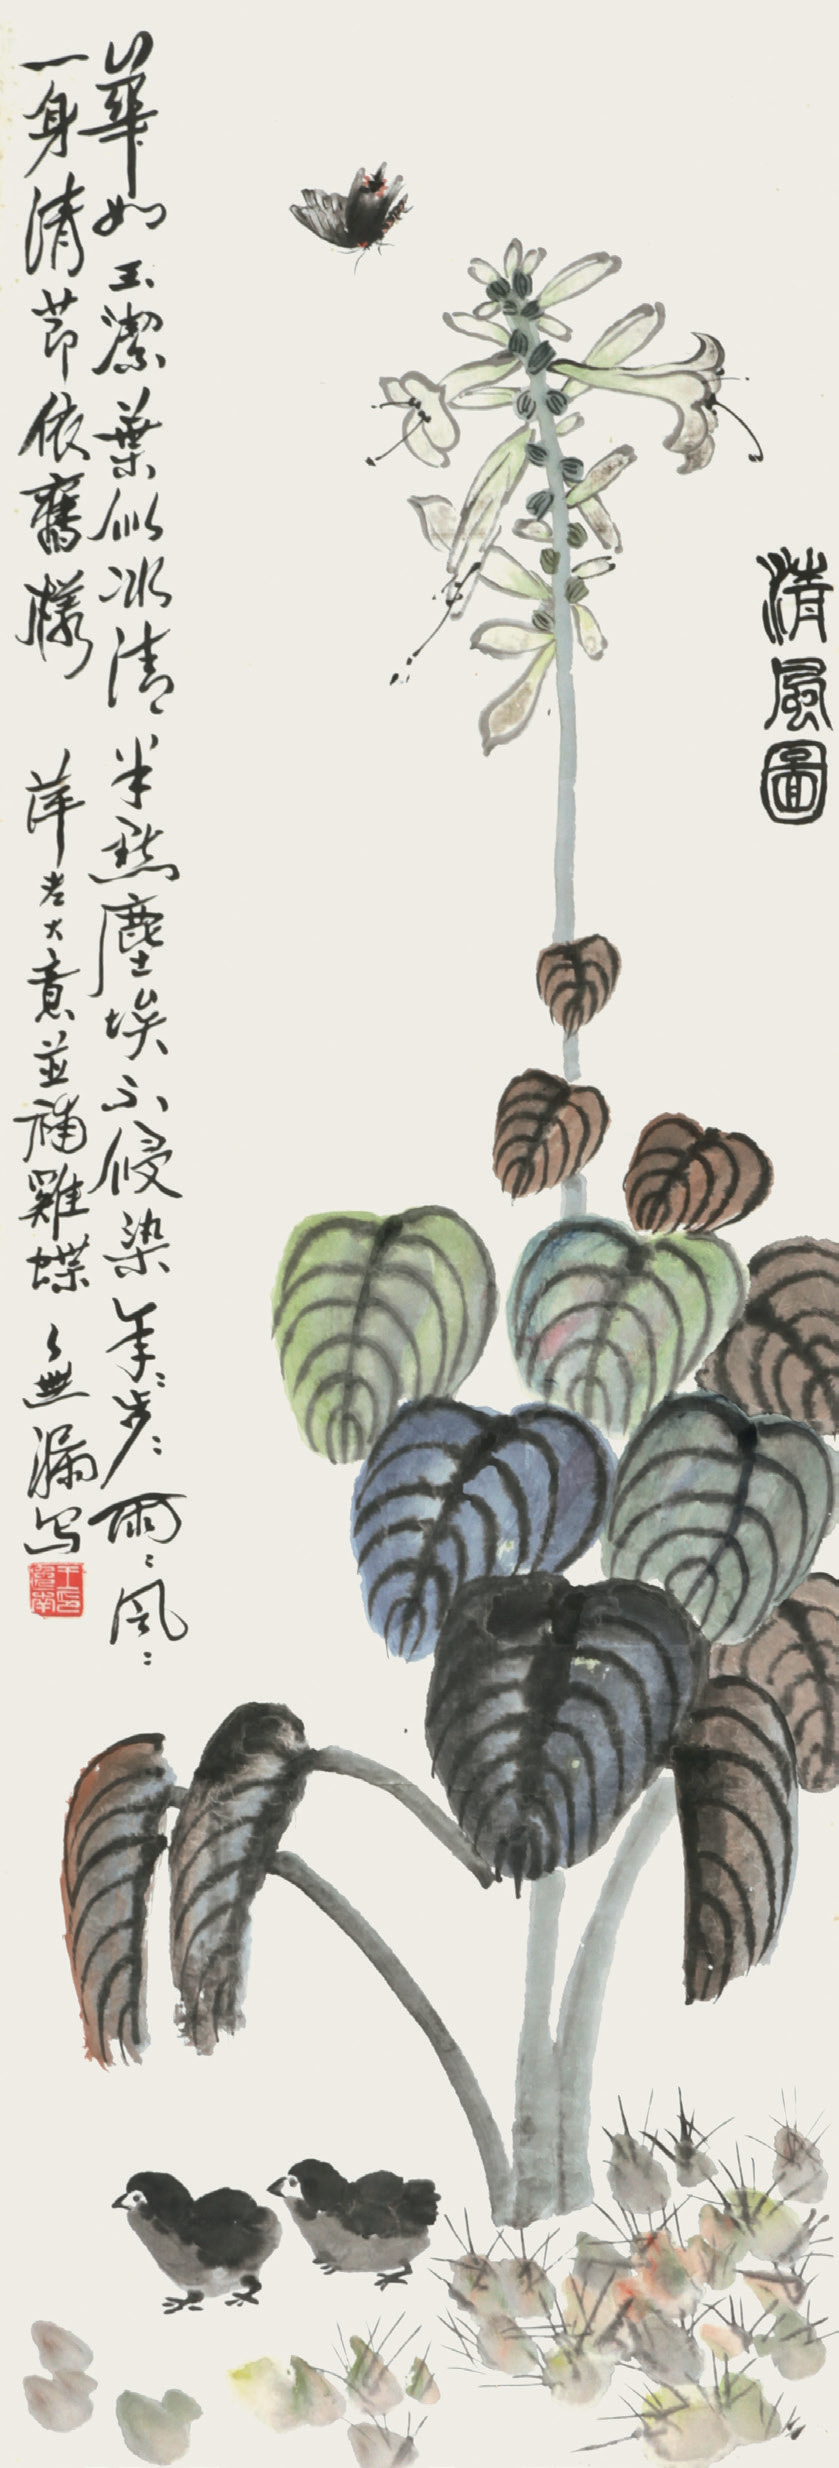 清風圖
華如玉潔葉似冰清半點塵埃不侵染年〻步〻雨〻風〻
一身清節依舊樣 萍老大意並補雞蝶 無漏写